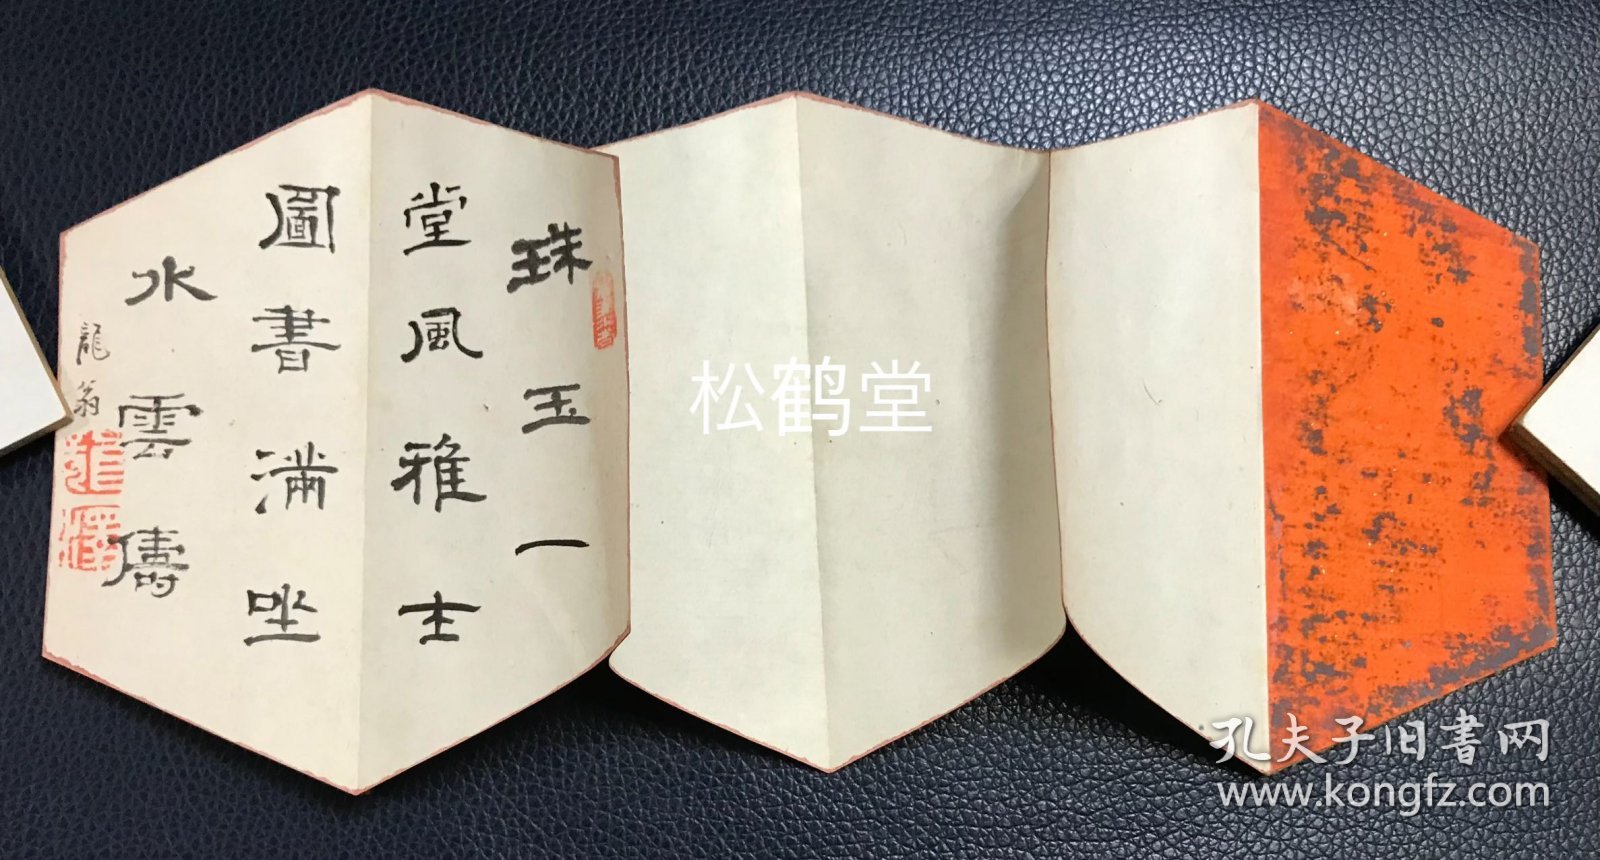 珠玉一
堂風雅士
圖書滿坐
水雲儔
龍翁
松鹤堂
孔夫子旧书网
www.kongfz.com